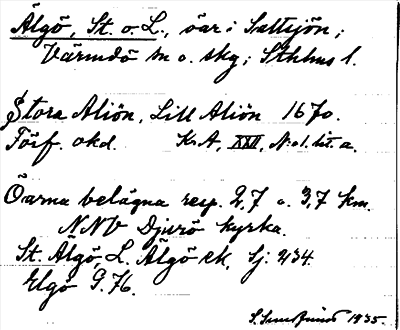 Älgö, St. o. L., öar i Saltsjön;
Värmdö sn o. skg; Sthlms l.
Stora Aliön, Lill Aliön 1670.
Förf. okd. K.A, XXII, N:o 1. lit. a.
Öarna belägna resp. 2,7 o. 3,7 km.
NNV Djurö kyrka.
St. Älgö, L. Älgö ek, Sj. 234.
Elgö G.76.
1935.